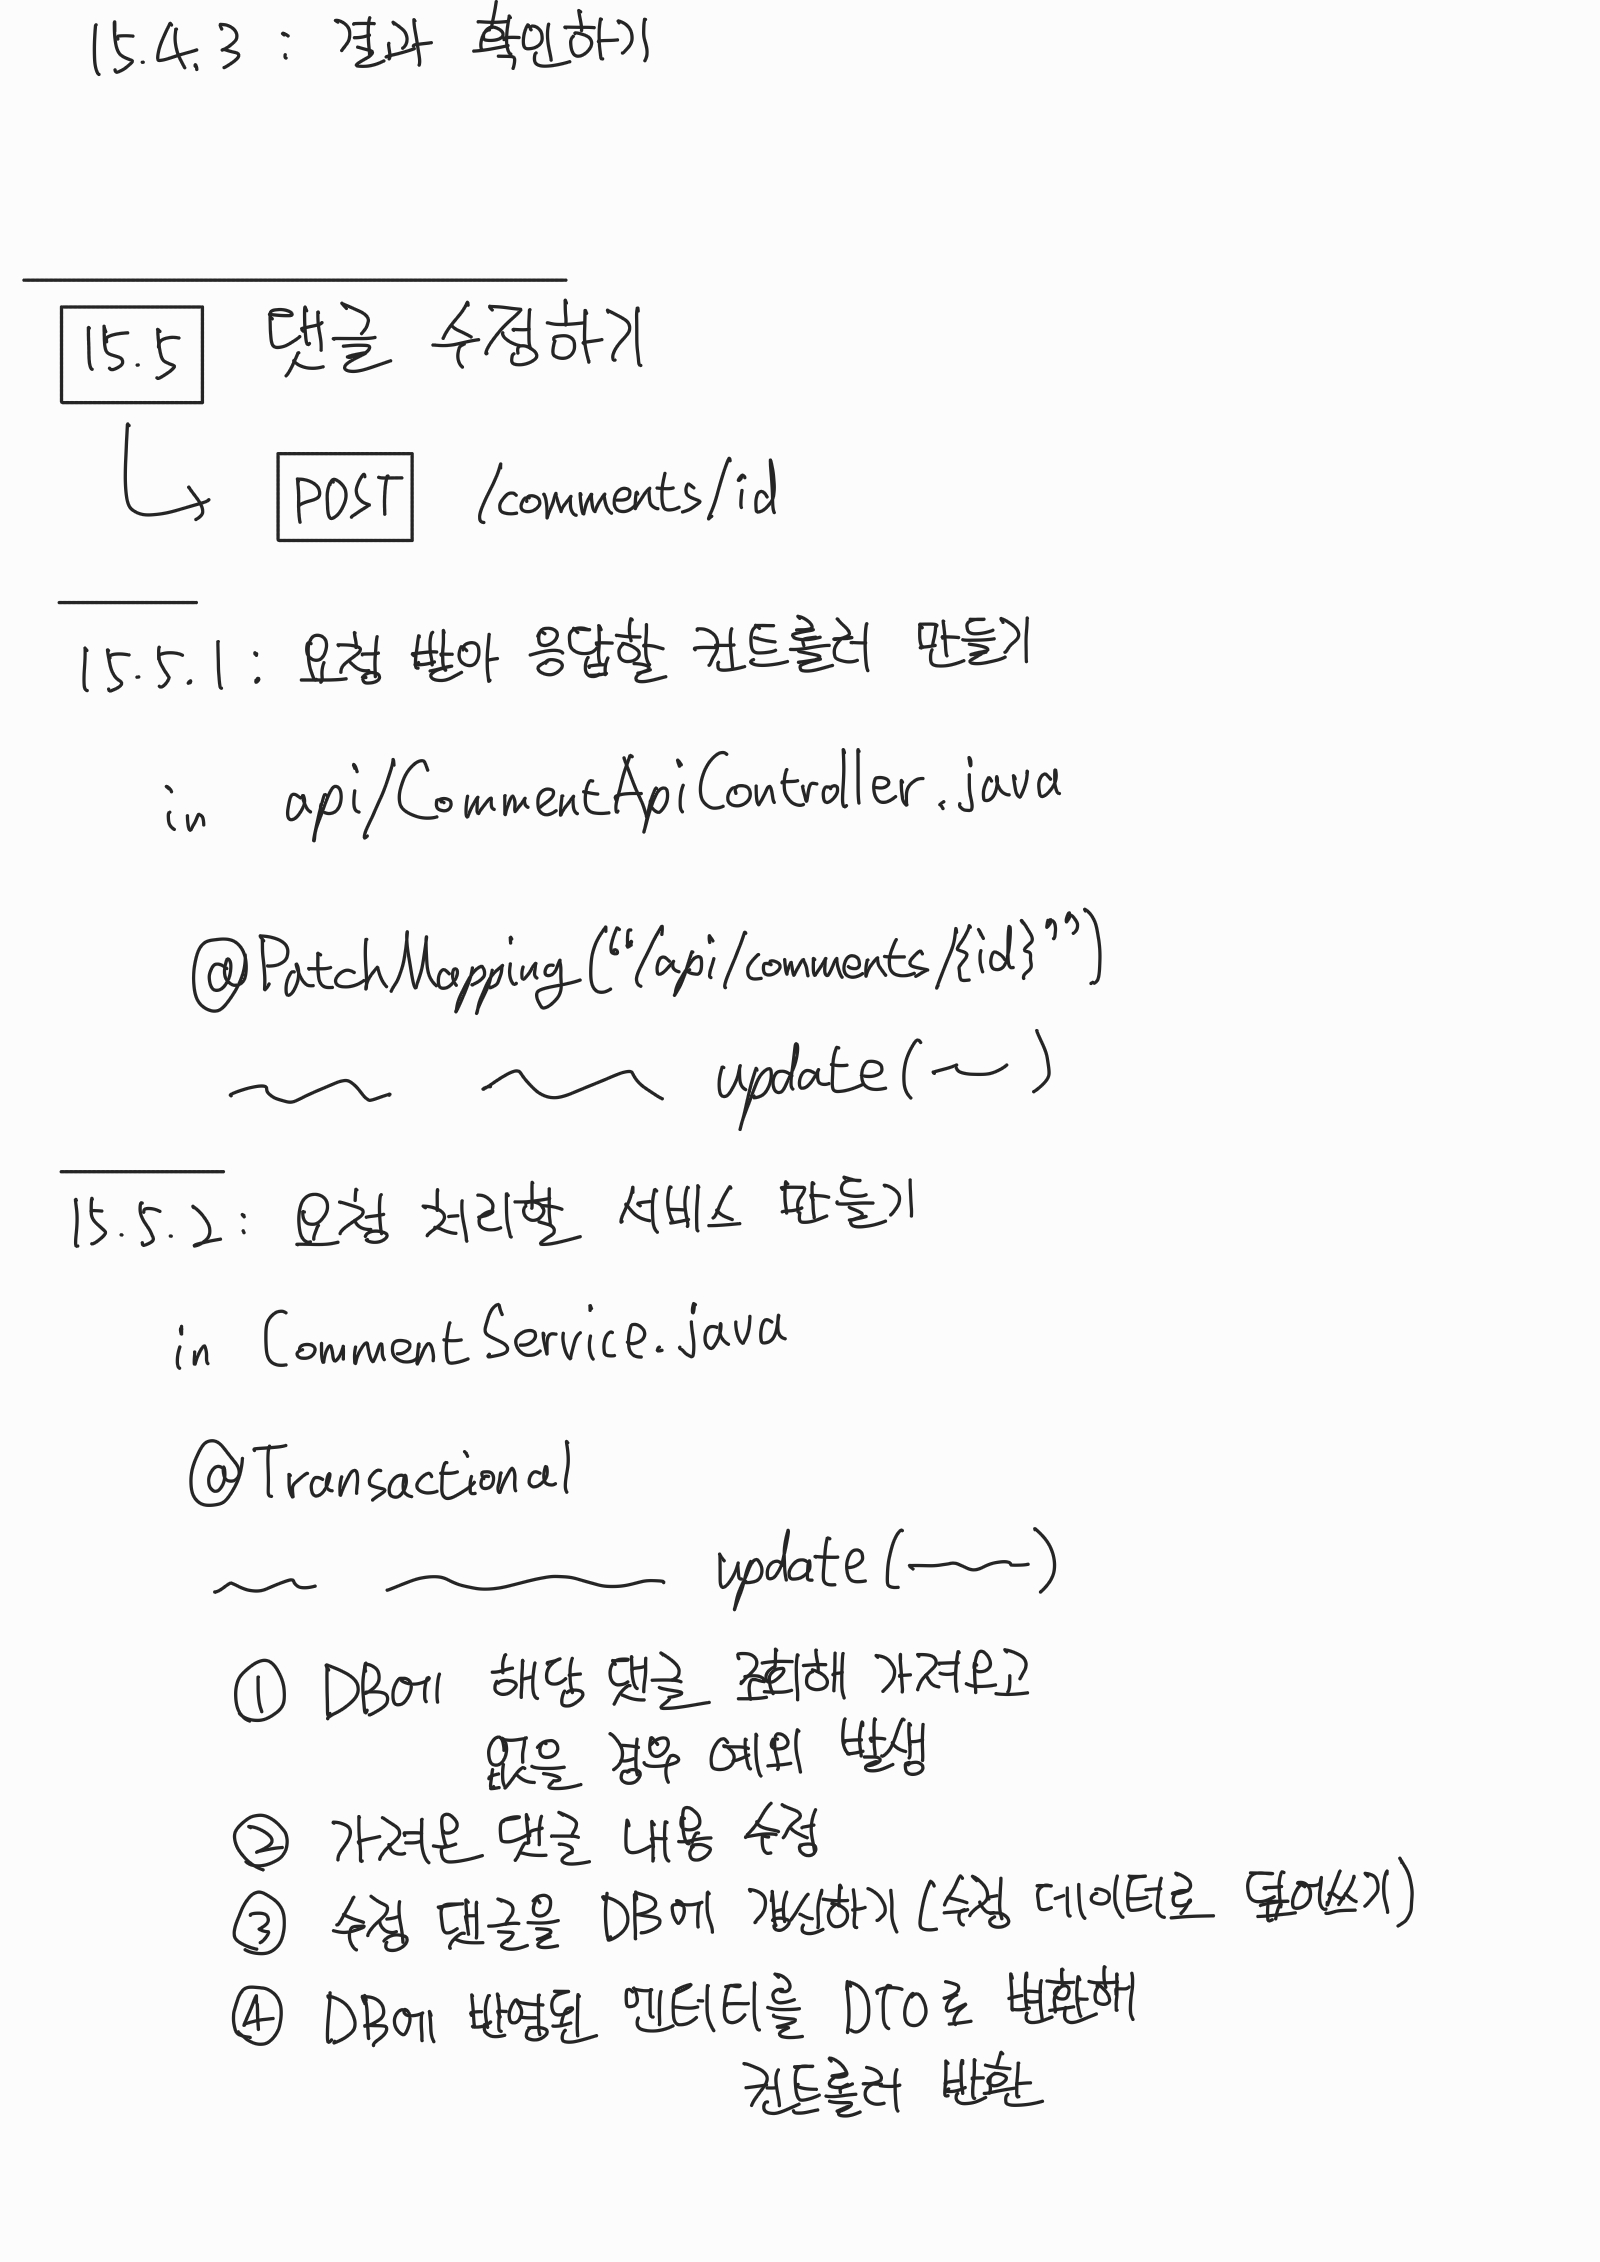 15.4.3 : 결과 확인하기
15.5 댓글 수정하기
POST /comments/id
15.5.1 : 요청 받아 응답할 컨트롤러 만들기
in api/CommentApiController.java
@PatchMapping(“/api/comments/{id}”)
update( )
15.5.2 : 요청 처리할 서비스 만들기
in CommentService.java
@Transactional
update( )
① DB에 해당 댓글 조회해 가져오고
없을 경우 예외 발생
② 가져온 댓글 내용 수정
③ 수정 댓글을 DB에 갱신하기 (수정 데이터로 덮어쓰기)
④ DB에 반영된 엔티티를 DTO로 변환해
컨트롤러 반환